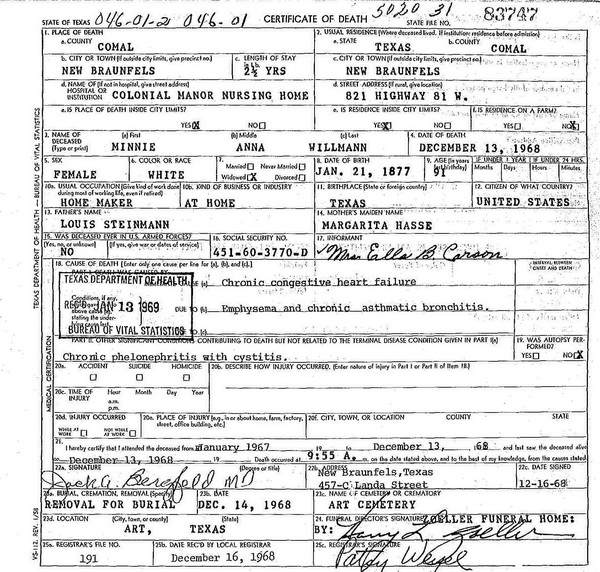 STATE OF TEXAS 046-01-2 046-01 CERTIFICATE OF DEATH 5020 31 83747
1. PLACE OF DEATH
a. COUNTY
COMAL
2. USUAL RESIDENCE (Where deceased lived. If institution: residence before admission)
a. STATE
TEXAS
b. COUNTY
COMAL
b. CITY OR TOWN (If outside city limits, give precinct no.)
NEW BRAUNFELS
c. LENGTH OF STAY
2½ YRS
c. CITY OR TOWN (If outside city limits, give precinct no.)
NEW BRAUNFELS
d. NAME OF (If not in hospital, give street address)
HOSPITAL OR
INSTITUTION COLONIAL MANOR NURSING HOME
d. STREET ADDRESS (If rural, give location)
821 HIGHWAY 81 W.
e. IS PLACE OF DEATH INSIDE CITY LIMITS?
YES X NO
e. IS RESIDENCE INSIDE CITY LIMITS?
YES X NO
f. IS RESIDENCE ON A FARM?
YES NO X
3. NAME OF
DECEASED
(Type or print)
(a) First
MINNIE
(b) Middle
ANNA
(c) Last
WILLMANN
4. DATE OF DEATH
DECEMBER 13, 1968
5. SEX
FEMALE
6. COLOR OR RACE
WHITE
7.
Married Never Married
Widowed X Divorced
8. DATE OF BIRTH
JAN. 21, 1877
9. AGE (In years
last birthday)
91
IF UNDER 1 YEAR
IF UNDER 24 HRS.
10a. USUAL OCCUPATION (Give kind of work done
during most of working life, even if retired)
HOME MAKER
10b. KIND OF BUSINESS OR INDUSTRY
AT HOME
11. BIRTHPLACE (State or foreign country)
TEXAS
12. CITIZEN OF WHAT COUNTRY?
UNITED STATES
13. FATHER'S NAME
LOUIS STEINMANN
14. MOTHER'S MAIDEN NAME
MARGARITA HASSE
15. WAS DECEASED EVER IN U.S. ARMED FORCES?
(Yes, no, or unknown) (If yes, give war or dates of service)
NO
16. SOCIAL SECURITY NO.
451-60-3770-D
17. INFORMANT
Mrs Ella B Carson
18. CAUSE OF DEATH [Enter only one cause per line for (a), (b), and (c).]
INTERVAL BETWEEN
PART I. DEATH WAS CAUSED BY:
Chronic congestive heart failure
TEXAS DEPARTMENT OF HEALTH
REC'D JAN 13 1969
BUREAU OF VITAL STATISTICS
Conditions, if any,
above cause (a)
stating the under-
lying cause last.
DUE TO (b) Emphysema and chronic asthmatic bronchitis.
DUE TO (c)
PART II. OTHER SIGNIFICANT CONDITIONS CONTRIBUTING TO DEATH BUT NOT RELATED TO THE TERMINAL DISEASE CONDITION GIVEN IN PART I(a)
Chronic phelonephritis with cystitis.
19. WAS AUTOPSY PER-
FORMED?
YES NO X
20a. ACCIDENT SUICIDE HOMICIDE
20b. DESCRIBE HOW INJURY OCCURRED. (Enter nature of injury in Part I or Part II of item 18)
20c. TIME OF
INJURY
Hour Month Day Year
a.m.
p.m.
20d. INJURY OCCURRED
WHILE AT WORK NOT WHILE AT WORK
20e. PLACE OF INJURY (e.g., in or about home, farm, factory,
street, office building, etc.)
20f. CITY, TOWN, OR LOCATION COUNTY STATE
21. I hereby certify that I attended the deceased from January 1967 to December 13, 1968 and last saw the deceased alive
on December 13, 1968. Death occurred at 9:55 A. m. on the date stated above, and to the best of my knowledge, from the causes stated.
22a. SIGNATURE (Degree or title)
Jack A. Bergfeld MD
22b. ADDRESS
New Braunfels, Texas
457-C Landa Street
22c. DATE SIGNED
12-16-68
23a. BURIAL, CREMATION, REMOVAL (Specify)
REMOVAL FOR BURIAL
23b. DATE
DEC. 14, 1968
23c. NAME OF CEMETERY OR CREMATORY
ART CEMETERY
23d. LOCATION (City, town, or county) (State)
ART, TEXAS
24. FUNERAL DIRECTOR'S SIGNATURE ZOELLER FUNERAL HOME:
BY: Harry L Zoeller
25a. REGISTRAR'S FILE NO.
191
25b. DATE REC'D BY LOCAL REGISTRAR
December 16, 1968
25c. REGISTRAR'S SIGNATURE
TEXAS DEPARTMENT OF HEALTH — BUREAU OF VITAL STATISTICS
MEDICAL CERTIFICATION
VS-112, REV. 1/58